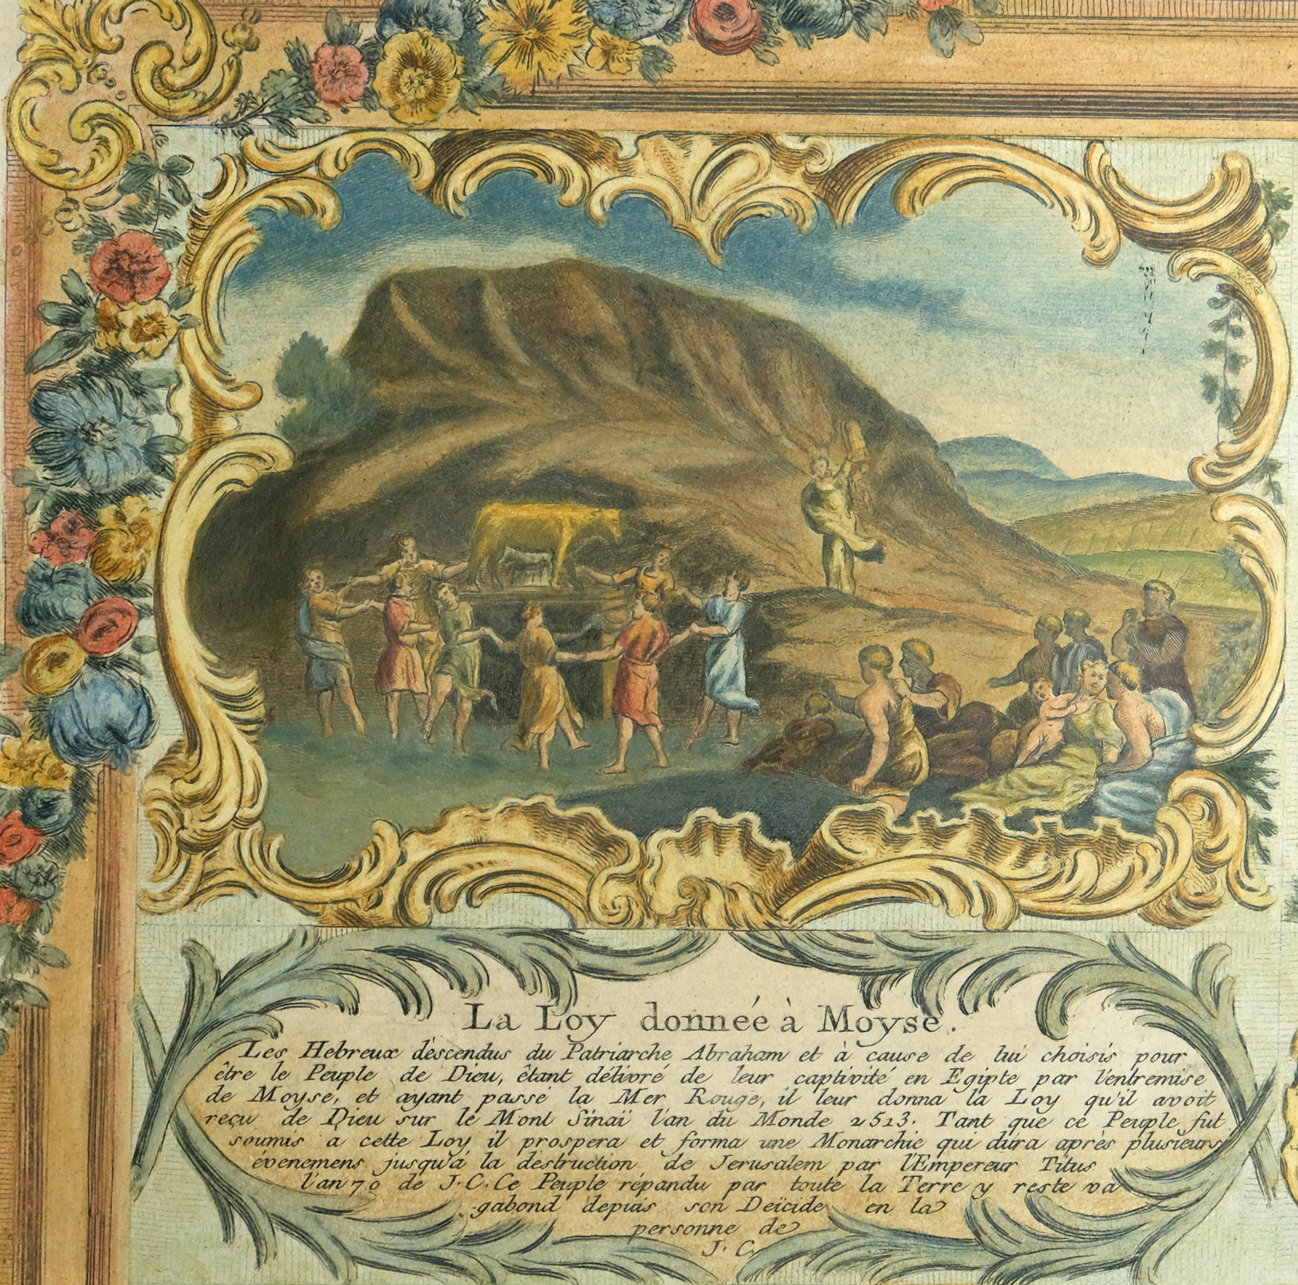 La Loy donnée à Moyse.
Les Hebreux descendus du Patriarche Abraham et à cause de lui choisis pour
être le Peuple de Dieu, étant délivré de leur captivité en Egipte par l'entremise
de Moyse, et ayant passe la Mer Rouge, il leur donna la Loy qu'il avoit
reçu de Dieu sur le Mont Sinaï l'an du Monde 2513. Tant que ce Peuple fut
soumis a cette Loy il prospera et forma une Monarchie qui dura après plusieurs
évenemens jusqu'á la destruction de Jerusalem par l'Empereur Titus
l'an 70 de J.C. Ce Peuple répandu par toute la Terre y reste va
gabond depuis son Deïcide en la
personne de
J. C.